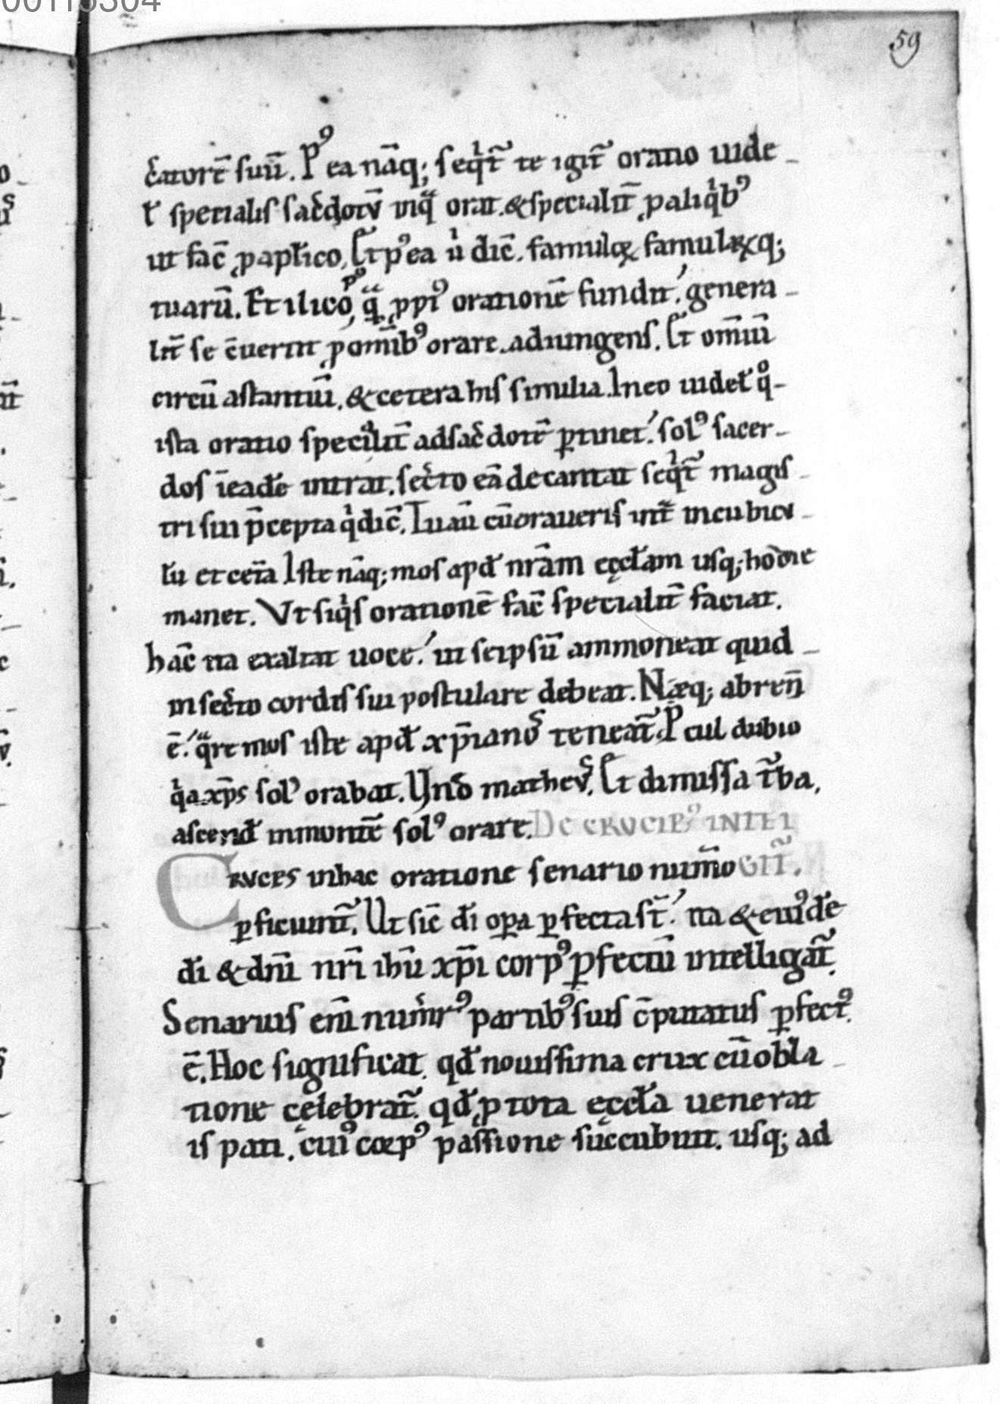 59
c̃atorē suū. Pꝰ ea nāq; seqͥt̃ te igit̃ oratio uide
l̃ specialis sac̃dotū uiq̃ orat. & specialit̃ ꝓ aliqͥbꝰ
ut fac̃ ꝓ aplico. Et̃ pꝰ ea ů dic̃. famuloꝝ famulaꝝq;
tuarū. Et ilico, q̃ ꝓpꝰ orationē fundit, genera
lit̃ se c̄uertit ꝓ omībꝰ orare. adiungens. Et̃ omīū
circū astantiū. & cetera his similia. In eo uidet̃ qͦ
ista oratio specialit̃ ad sac̃dotē ꝑtinet. solꝰ sacer
dos ī eadē intrat. sec̃to eā decantat seqͥt̃ magis
tri sui p̄cepta qͥ dic̃. Tu aū cū oraueris int̃ in cubicu
lū et cet̃a Iste nāq; mos apd̃ nr̄am ęccl̃am usq; hodie
manet. Vt siqͥs orationē fac̃ specialit̃ faciat.
hac̃ ita exaltat uoce. ut seipsū ammoneat quid
in sec̃to cordis sui postulare debeat. Neq; ab renū
ē. q̃re mos iste apd̃ xp̄ianos teneat̃. Pcul dubio
qͥa xp̄s solꝰ orabat. Und̃ matheus. Et dimissa t̃ba,
ascend̃ in montē solꝰ orare. DE CRVCIBꝰ INTEL
CRVCES in hac oratione senario num̃o GIT̃.
ꝑficiunt̃. Ut sic̃ d̄i opa ꝑfecta st̃. ita & eiꝰdē
d̄i & dn̄i nr̄i ih̄u xp̄i corpꝰ ꝑfectū intelligat̃.
Senarius eni numr̃ꝰ partibꝰ suis c̄putatus ꝑfectꝰ
ē. Hoc significat. qd̃ nouissima crux cū obla
tione celebrat̃. qd̃ ꝓ tota eccl̃a uenerat
is pati. cuiꝰ corpꝰ passione succubuit. usq; ad